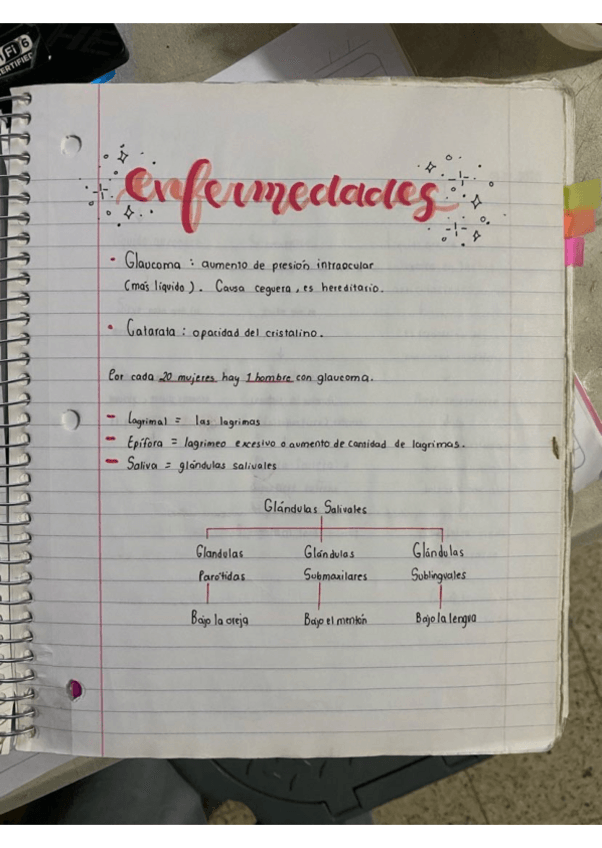 Fi 6
CERTIFIED
enfermedades
• Glaucoma : aumento de presión intraocular
(más líquido). Causa ceguera, es hereditario.
• Catarata : opacidad del cristalino.
Por cada 20 mujeres hay 1 hombre con glaucoma.
- Lagrimal = las lagrimas
- Epífora = lagrimeo excesivo o aumento de cantidad de lagrimas.
- Saliva = glándulas salivales
Glándulas Salivales
Glandulas Glándulas Glándulas
Parótidas Submaxilares Sublinguales
Bajo la oreja Bajo el mentón Bajo la lengua